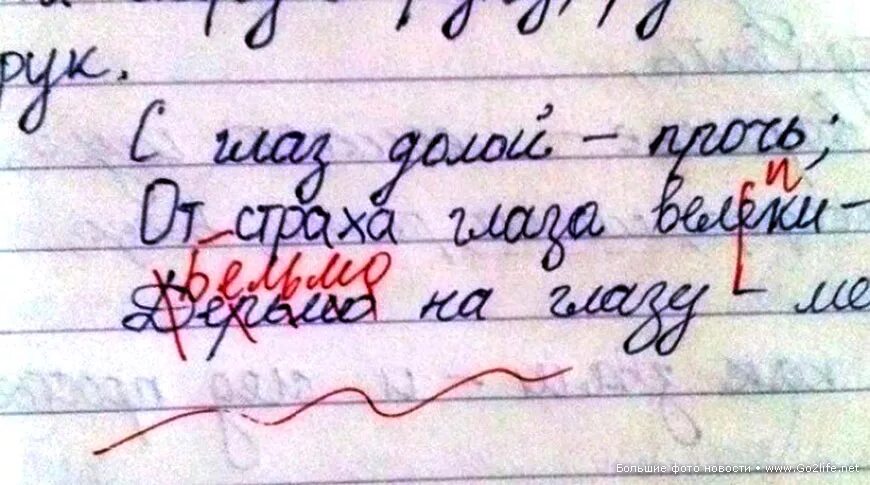 рук.
С глаз долой – прочь;
п
От страха глаза велеки –
Бельмо
Дерьмо на глазу – ме
Большие фото новости • www.Go2life.net